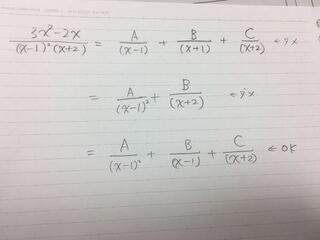 (3x²-2x)/((x-1)²(x+2)) = A/(x-1) + B/(x+1) + C/(x+2) ←ダメ
= A/(x-1)² + B/(x+2) ←ダメ
= A/(x-1)² + B/(x-1) + C/(x+2) ←OK